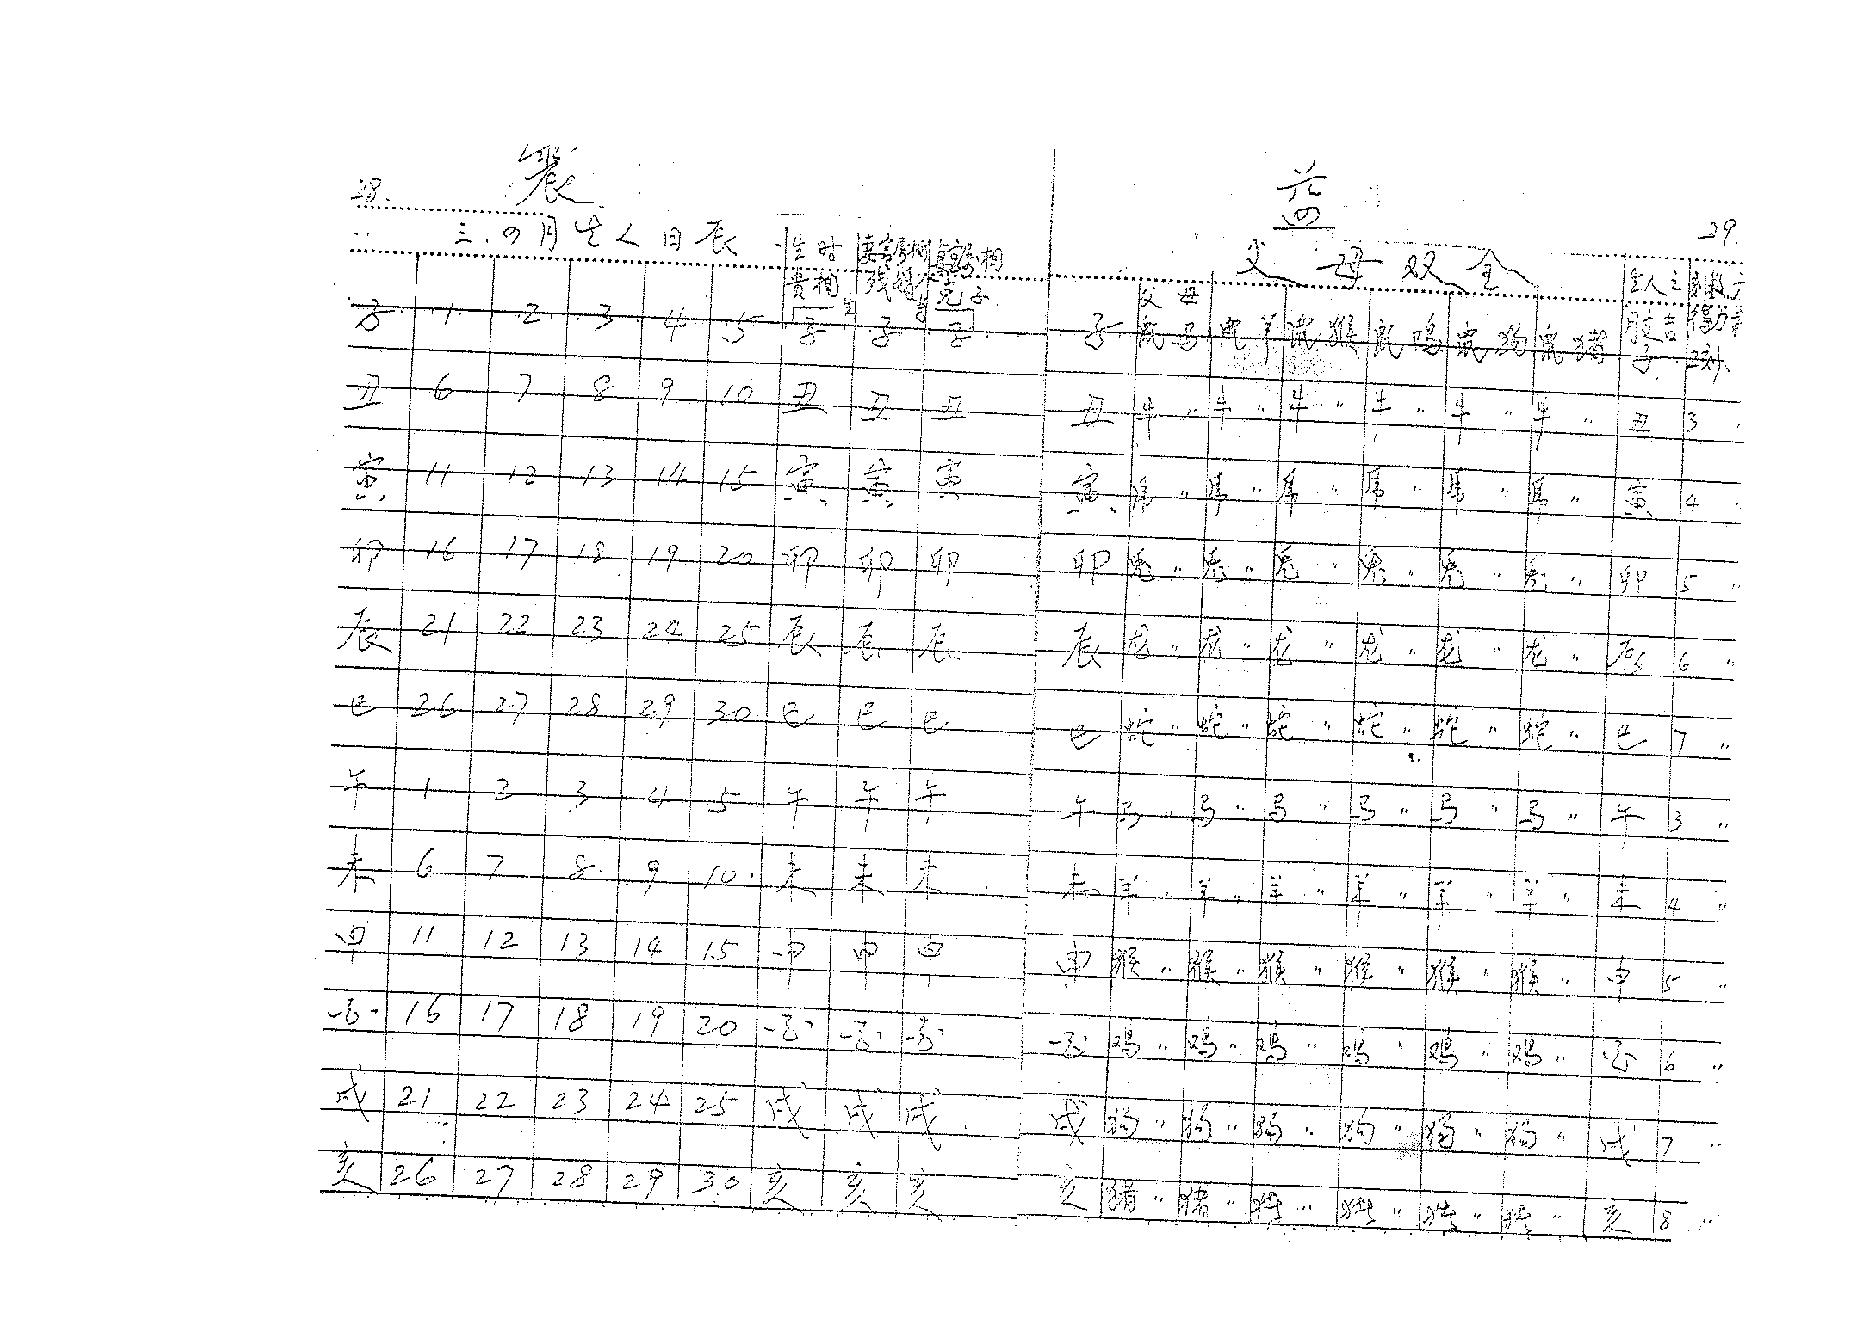 28.
三.四月生人日辰 生时贵相
子 1 2 3 4 5 子 子 子
丑 6 7 8 9 10 丑 丑 丑
寅 11 12 13 14 15 寅 寅 寅
卯 16 17 18 19 20 卯 卯 卯
辰 21 22 23 24 25 辰 辰 辰
巳 26 27 28 29 30 巳 巳 巳
午 1 2 3 4 5 午 午 午
未 6 7 8 9 10 未 未 未
申 11 12 13 14 15 申 申 申
酉 16 17 18 19 20 酉 酉 酉
戌 21 22 23 24 25 戌 戌 戌
亥 26 27 28 29 30 亥 亥 亥
益
29.
父母双全
父母
子 鼠马 鼠羊 鼠猴 鼠鸡 鼠狗 鼠猪 子
丑 牛 〃 牛 〃 牛 〃 牛 〃 牛 〃 牛 〃 丑 3
寅 虎 〃 虎 〃 虎 〃 虎 〃 虎 〃 虎 〃 寅 4
卯 兔 〃 兔 〃 兔 〃 兔 〃 兔 〃 兔 〃 卯 5 〃
辰 龙 〃 龙 〃 龙 〃 龙 〃 龙 〃 龙 〃 辰 6 〃
巳 蛇 〃 蛇 〃 蛇 〃 蛇 〃 蛇 〃 蛇 〃 巳 7 〃
午 马 〃 马 〃 马 〃 马 〃 马 〃 马 〃 午 3 〃
未 羊 〃 羊 〃 羊 〃 羊 〃 羊 〃 羊 〃 未 4 〃
申 猴 〃 猴 〃 猴 〃 猴 〃 猴 〃 猴 〃 申 5 〃
酉 鸡 〃 鸡 〃 鸡 〃 鸡 〃 鸡 〃 鸡 〃 酉 6 〃
戌 狗 〃 狗 〃 狗 〃 狗 〃 狗 〃 狗 〃 戌 7 〃
亥 猪 〃 猪 〃 猪 〃 猪 〃 猪 〃 猪 〃 亥 8 〃